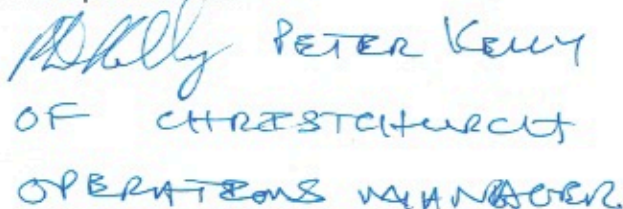 PETER KELLY
OF CHRISTCHURCH
OPERATIONS MANAGER